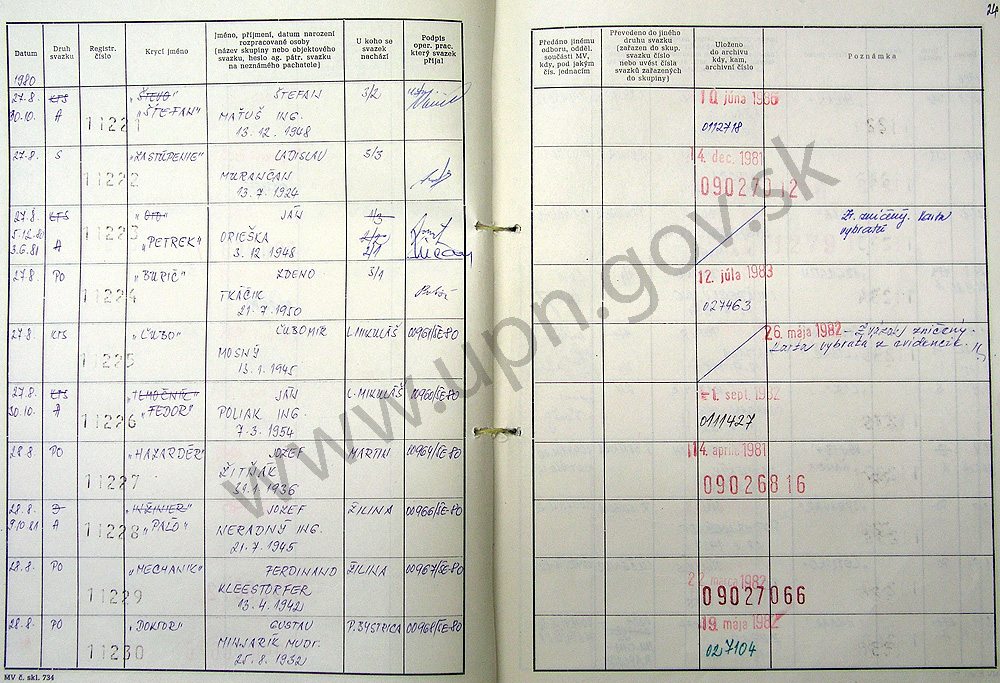 24
Datum
Druh svazku
Registr. číslo
Krycí jméno
Jméno, příjmení, datum narození rozpracované osoby (název skupiny nebo objektového svazku, heslo ag. pátr. svazku na neznámého pachatele)
U koho se svazek nachází
Podpis oper. prac. který svazek přijal
Předáno jinému odboru, odděl. součásti MV, kdy, pod jakým čís. jednacím
Převedeno do jiného druhu svazku (zařazen do skup. svazku číslo nebo uvést čísla svazků zařazených do skupiny)
Uloženo do archivu kdy, kam, archivní číslo
Poznámka
1980
27.8. KTS „ŠTEVO" ŠTEFAN S/2 10. júna 1986
30.10. A 11221 „ŠTEFAN" MAŤUŠ ING. 0112718
13.12.1948
27.8. S „ZASTÚPENIE" LADISLAV S/3 14. dec. 1981
11222 MURANČAN 09027012
13.7.1924
27.8. KTS „OTO" JÁN Zv. zničený. Karta
11223 vybratá
3.6.81 A „PETREK" ORIEŠKA 2/1
3.12.1948
27.8 PO „BURIČ" ZDENO S/1 12. júla 1983
11224 TKÁČIK 027463
21.7.1950
27.8. KTS „ĽUBO" ĽUBOMÍR L. MIKULÁŠ 00961/ŠE-80 26. mája 1982 – zničený.
11225 MOSNÝ karta vybratá z evidencie.
13.1.1945
27.8. KTS JÁN L. MIKULÁŠ 00960/ŠE-80 1. sept. 1982
30.10. A 11226 „FEDOR" POLIAK ING. 0111427
7.3.1954
28.8. PO „HAZARDÉR" JOZEF MARTIN 00964/ŠE-80 14. apríl. 1981
11227 ŽITŇÁK 09026816
1936
28.8. „INŽINIER" JOZEF ŽILINA 00966/ŠE-80
9.10.81 A 11228 „PAĽO" NERADNÝ ING.
21.7.1945
28.8. PO „MECHANIK" FERDINAND ŽILINA 00967/ŠE-80 22. marca 1982
11229 KLEESTORFER 09027066
13.4.1942
28.8. PO „DOKTOR" GUSTAV P. BYSTRICA 00968/ŠE-80 19. mája 1982
11230 MINJARÍK MUDr. 027104
25.8.1932
MV č. skl. 734
www.upn.gov.sk